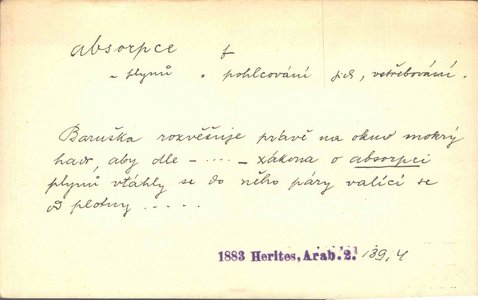 absorpce f
– plynů = pohlcování jich, vstřebování.
Baruška rozvěšuje právě na okno mokrý
hadr, aby dle – .... – zákona o absorpci
plynů vtáhly se do něho páry valící se
od plotny .....
1883 Herites, Arab. 2. 139,4